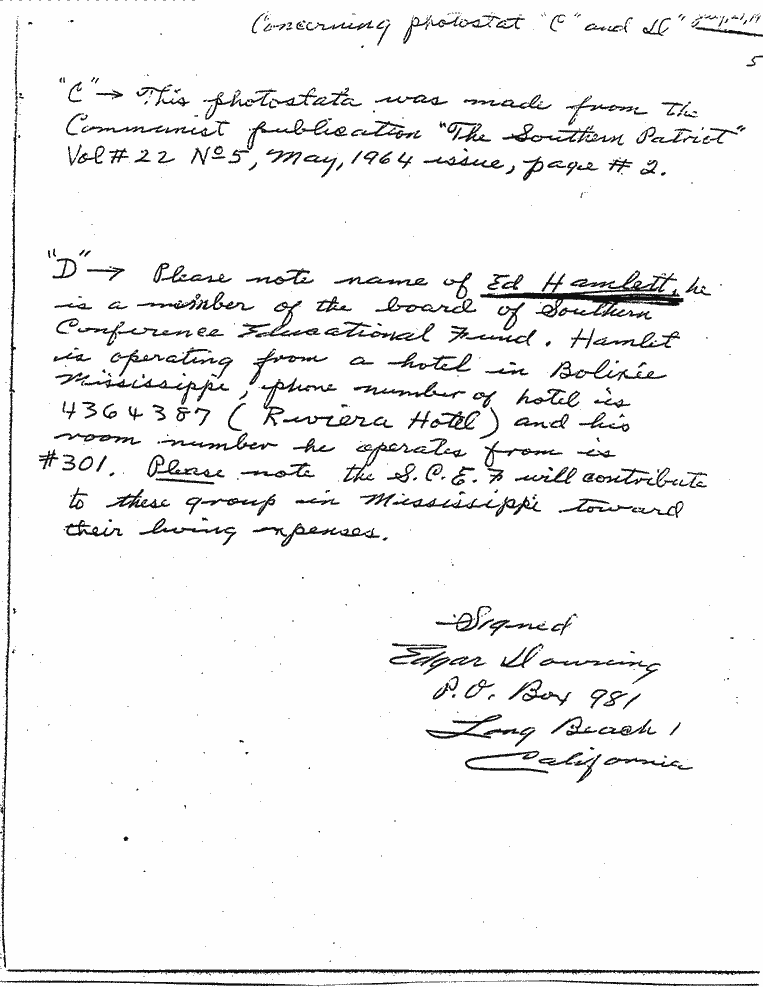 Concerning photostat "C" and "D"
5
"C"→ This photostata was made from the
Communist publication "The Southern Patriot"
Vol# 22 Nº5, May, 1964 issue, page # 2.
"D"→ Please note name of Ed Hamlett, he
is a member of the board of Southern
Conference Educational Fund. Hamlet
is operating from a hotel in
Mississippi, phone number of hotel is
4364387 (Riviera Hotel) and his
room number he operates from is
#301. Please note the S.C.E.F will contribute
to these group in Mississippi toward
their living expenses.
Signed
Edgar Downing
P.O. Box 981
Long Beach 1
California